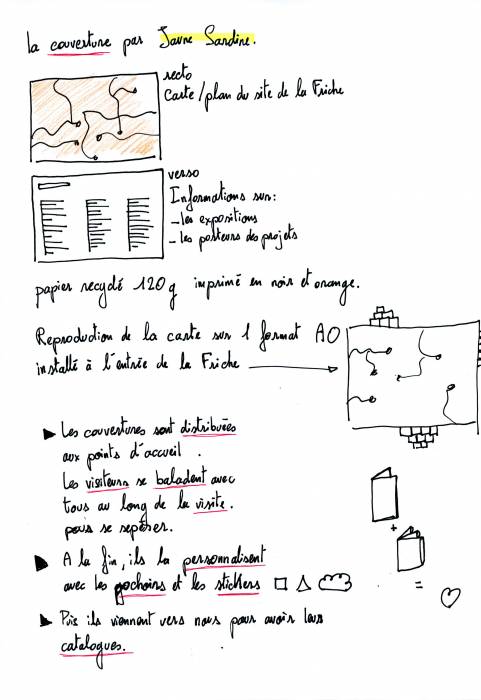 la couverture par Jaune Sardine.
recto
Carte/plan du site de la Friche
verso
Informations sur:
- les expositions
- les porteurs des projets
papier recyclé 120g imprimé en noir et orange.
Reproduction de la carte sur 1 format A0
installé à l'entrée de la Friche
Les couvertures sont distribuées
aux points d'accueil.
Les visiteurs se baladent avec
tous au long de la visite.
pour se repérer.
A la fin, ils la personnalisent
avec les pochoirs et les stickers
+
=
Puis ils viennent vers nous pour avoir leur
catalogues.